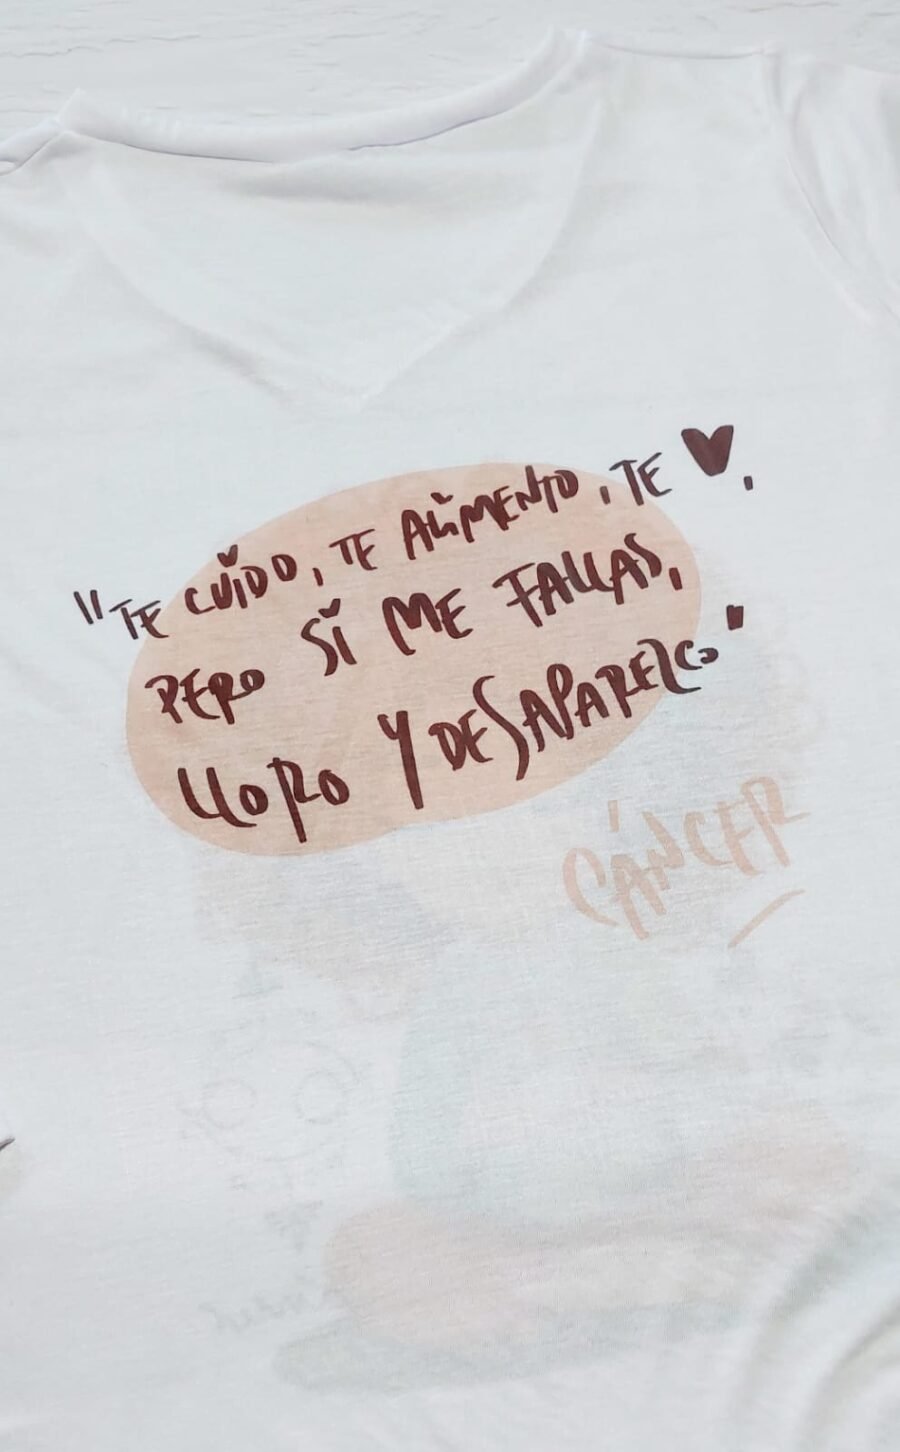 "TE CUIDO, TE ALIMENTO, TE ♥,
PERO SI ME FALLAS,
LLORO Y DESAPAREZCO"
CÁNCER